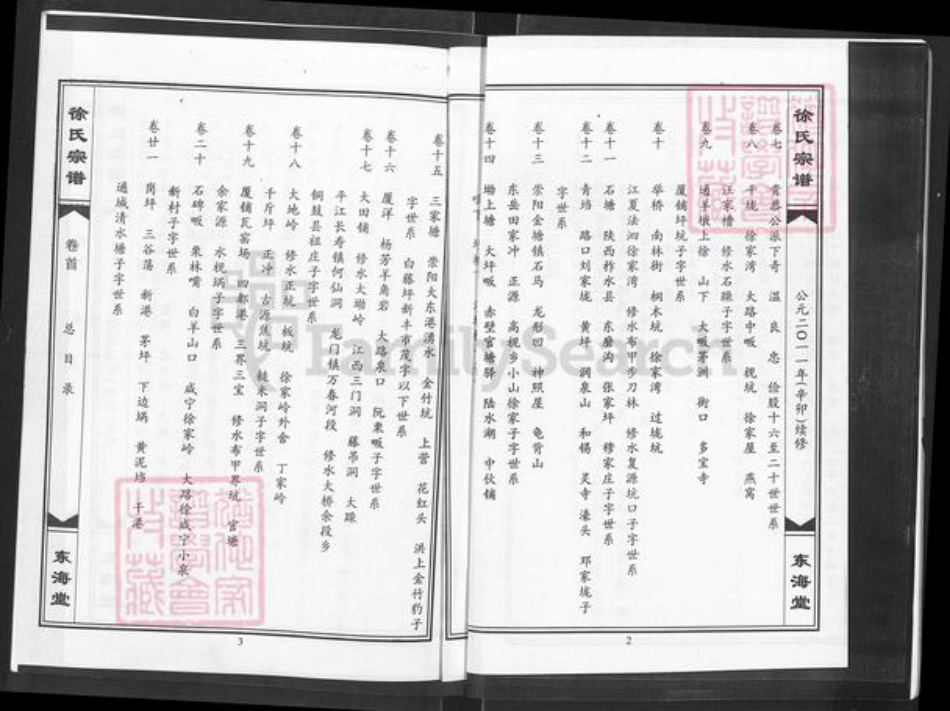 徐氏宗谱
公元二〇一一年(辛卯)续修
东海堂
卷七 肯恭公派下奇 温 良 忠 俭股十六至二十世世系
卷八 平垅 徐家湾 大路中畈 枧坑 徐家屋 燕窝
汪家槽 修水石躁子字世系
卷九 通羊塅上徐 山下 大畈茅洲 街口 多宝寺
厦铺坪坑子字世系
卷十 华桥 南林街 桐木坑 徐家湾 过垅坑
江夏法泗徐家湾 修水布甲步刀林 修水复源坑口子字世系
卷十一 石塘 陕西柞水县 东磨沟 张家坪 穆家庄子字世系
卷十二 青垱 路口刘家垅 黄坪 洞泉山 和锡 灵寺 濠头 邓家垅子
字世系
卷十三 崇阳金塘镇石马 龙形回 神照屋 龟背山
东岳田家冲 正源 高枧乡小山徐家子字世系
卷十四 塅上塘 大坪畈 赤壁官塘驿 陆水湖 中伙铺
2
卷十五 三家塘 崇阳大东港湧水 金竹坑 上营 花红头 洪上金竹豹子
字世系 白藤坪新丰市茂字以下世系
卷十六 厦洋 杨芳羊角岩 大路泉口 阮栗畈子字世系
卷十七 大田铺 修水大塅岭 江西三门洞 藤吊洞 大躁
平江长寿镇何仙洞 龙门镇万春河段 修水大桥余段乡
铜鼓县祖庄子字世系
卷十八 大地岭 修水正坑 板坑 徐家岭外舍 丁家岭
千斤坪 正冲 古源焦坑 糙米洞子字世系
卷十九 厦铺瓦窑场 四都港 三界三宝 修水布甲界坑 官塘
余家源 水枧埚子字世系
卷二十 石碑畈 栗林嘴 白羊山口 咸宁徐家岭 大路徐咸宁小泉
新村子字世系
卷廿一 岗坪 三谷荡 新港 茅坪 下边埚 黄泥垱 干港
通城清水塘子字世系
徐氏宗谱
卷首
总目录
东海堂
3
FamilySearch